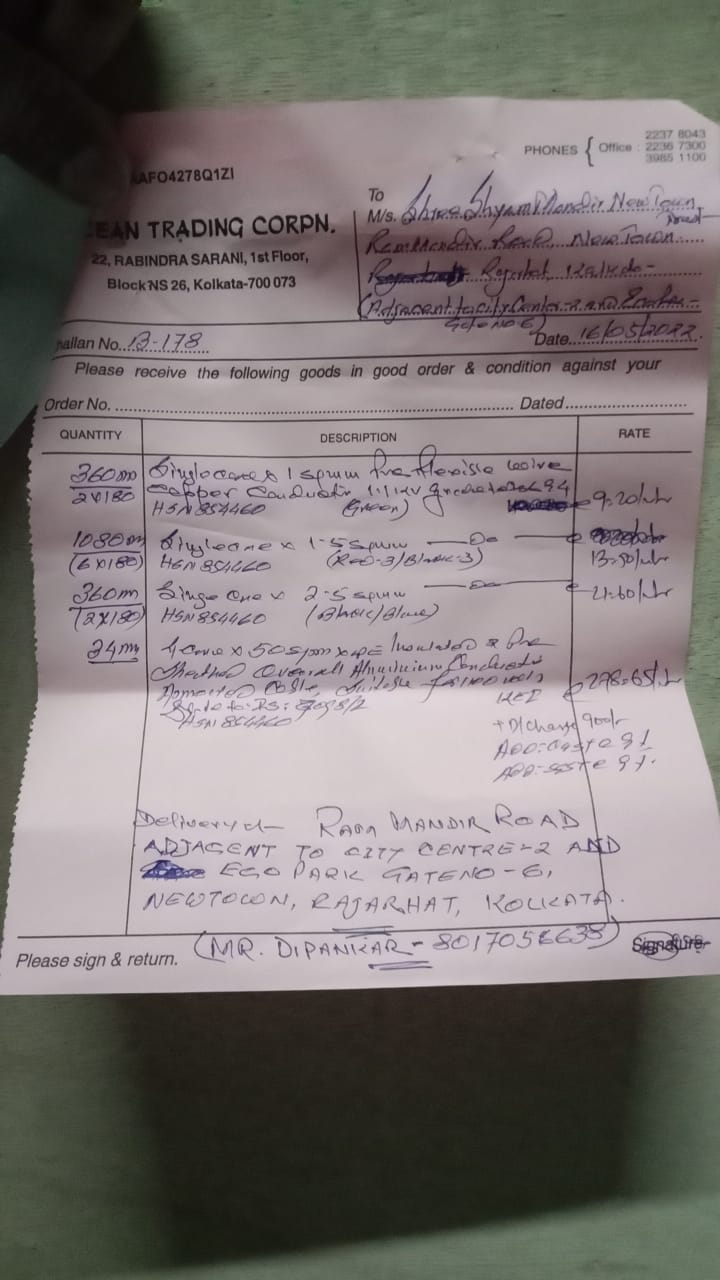 AAFO4278Q1ZI
PHONES { Office : 2237 8043
2236 7300
3985 1100
EAN TRADING CORPN.
22, RABINDRA SARANI, 1st Floor,
Block NS 26, Kolkata-700 073
To
M/s. Shree Shyam Mandir New Town
Ram Mandir Road, New Town
Rajarhat,
(Adjacent to City Center-2 and
Gate No 6)
hallan No. B-178
Date 16/05/2022
Please receive the following goods in good order & condition against your
Order No. Dated
QUANTITY DESCRIPTION RATE
360m Single core x 1 sqmm Pvc flexible wire
2x180 Copper Conductor 1.1 kv grade
HSN 854460 (Green) @ 9.20/mtr
1080m Single core x 1.5 sqmm — Do — @
(6x180) HSN 854460 (Red-3/Black-3) 13.50/mtr
360m Single Core x 2.5 sqmm — Do — @ 21.60/mtr
(2x180) HSN 854460 (Black/Blue)
34m 4 core x 50 sqmm XLPE Insulated & Pvc
Sheathed Overall Aluminium Conductor
Armoured Cable, Suitable for 1100 volts
HSN 854460
KEI @ 278.65/mtr
+ D/charge 900/-
ADD: CGST @ 9%
ADD: SGST @ 9%.
Delivery at— RAM MANDIR ROAD
ADJACENT TO CITY CENTRE-2 AND
ECO PARK GATE NO-6,
NEWTOWN, RAJARHAT, KOLKATA.
(MR. DIPANKAR - 8017056638)
Please sign & return.
Signature